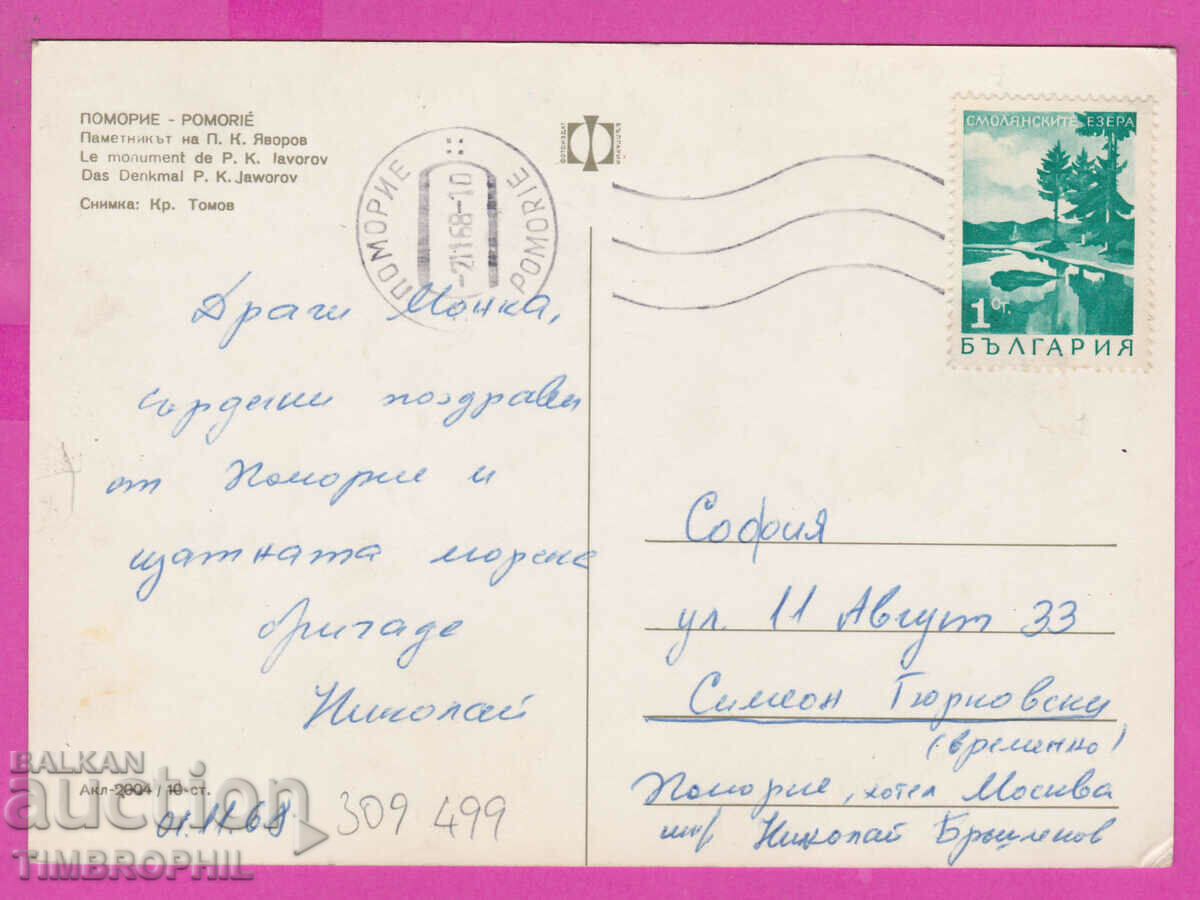 ПОМОРИЕ - POMORIÉ
Паметникът на П. К. Яворов
Le monument de P. K. Iavorov
Das Denkmal P. K. Jaworov
Снимка: Кр. Томов
ПОМОРИЕ POMORIE
-2.11.68-10
ФОТОИЗДАТ
СМОЛЯНСКИТЕ ЕЗЕРА
1 СТ.
БЪЛГАРИЯ
Драги Монка,
сърдечни поздрави
от Поморие и
щатната морска
бригада
Николай
София
ул. 11 Август 33
Симеон Гюрковски
(временно)
Поморие, хотел Москва
Николай Бръшленов
Акл-2004 / 10 ст.
01.11.68
309 499
BALKAN
auction
TIMBROPHIL